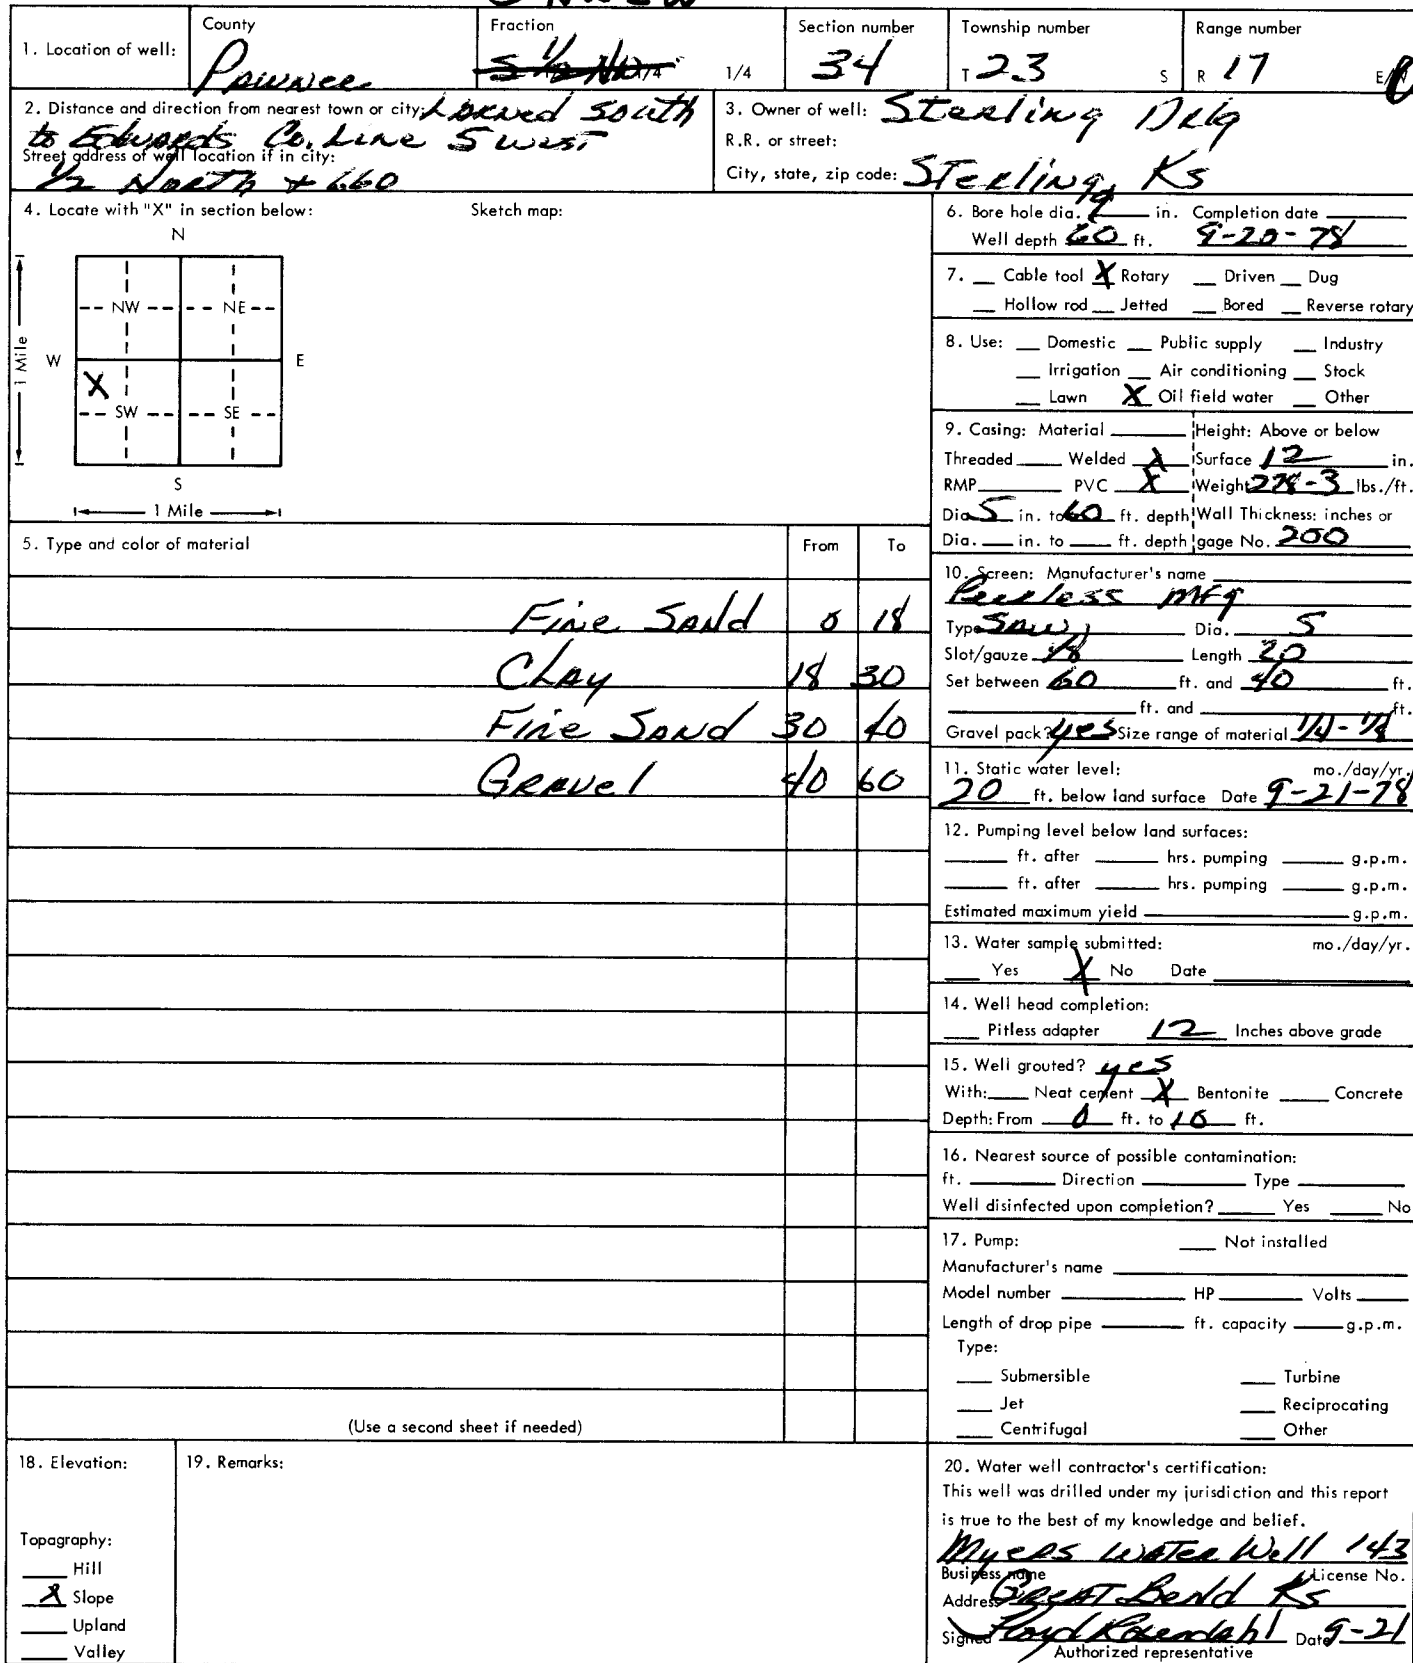 County Fraction Section number Township number Range number
1. Location of well: Pawnee 1/4 34 T 23 S R 17
2. Distance and direction from nearest town or city: Larned south
to Edwards Co. Line 5 west
Street address of well location if in city:
1/2 North + 660
3. Owner of well: Sterling Drlg
R.R. or street:
City, state, zip code: Sterling, Ks
4. Locate with "X" in section below: Sketch map:
N
NW NE
W E
X
SW SE
S
1 Mile
1 Mile
5. Type and color of material From To
Fine Sand 0 18
Clay 18 30
Fine Sand 30 40
Gravel 40 60
(Use a second sheet if needed)
6. Bore hole dia. 9 in. Completion date
Well depth 60 ft. 9-20-78
7. __ Cable tool X Rotary __ Driven __ Dug
__ Hollow rod __ Jetted __ Bored __ Reverse rotary
8. Use: __ Domestic __ Public supply __ Industry
__ Irrigation __ Air conditioning __ Stock
__ Lawn X Oil field water __ Other
9. Casing: Material ____ Height: Above or below
Threaded ____ Welded X Surface 12 in.
RMP ____ PVC X Weight 278-3 lbs./ft.
Dia. 5 in. to 60 ft. depth Wall Thickness: inches or
Dia. __ in. to __ ft. depth gage No. 200
10. Screen: Manufacturer's name
Peerless mfg
Type Saw Dia. 5
Slot/gauze 1/8 Length 20
Set between 60 ft. and 40 ft.
____ ft. and ____ ft.
Gravel pack? yes Size range of material 1/4 - 1/8
11. Static water level: mo./day/yr.
20 ft. below land surface Date 9-21-78
12. Pumping level below land surfaces:
____ ft. after ____ hrs. pumping ____ g.p.m.
____ ft. after ____ hrs. pumping ____ g.p.m.
Estimated maximum yield ____ g.p.m.
13. Water sample submitted: mo./day/yr.
__ Yes X No Date ____
14. Well head completion:
__ Pitless adapter 12 Inches above grade
15. Well grouted? yes
With: __ Neat cement X Bentonite __ Concrete
Depth: From 0 ft. to 10 ft.
16. Nearest source of possible contamination:
ft. ____ Direction ____ Type ____
Well disinfected upon completion? ____ Yes ____ No
17. Pump: __ Not installed
Manufacturer's name ____
Model number ____ HP ____ Volts ____
Length of drop pipe ____ ft. capacity ____ g.p.m.
Type:
__ Submersible __ Turbine
__ Jet __ Reciprocating
__ Centrifugal __ Other
18. Elevation: 19. Remarks:
Topagraphy:
__ Hill
X Slope
__ Upland
__ Valley
20. Water well contractor's certification:
This well was drilled under my jurisdiction and this report
is true to the best of my knowledge and belief.
Myers Water Well 143
Business name License No.
Address Great Bend Ks
Signed Floyd Rosendahl Date 9-21
Authorized representative